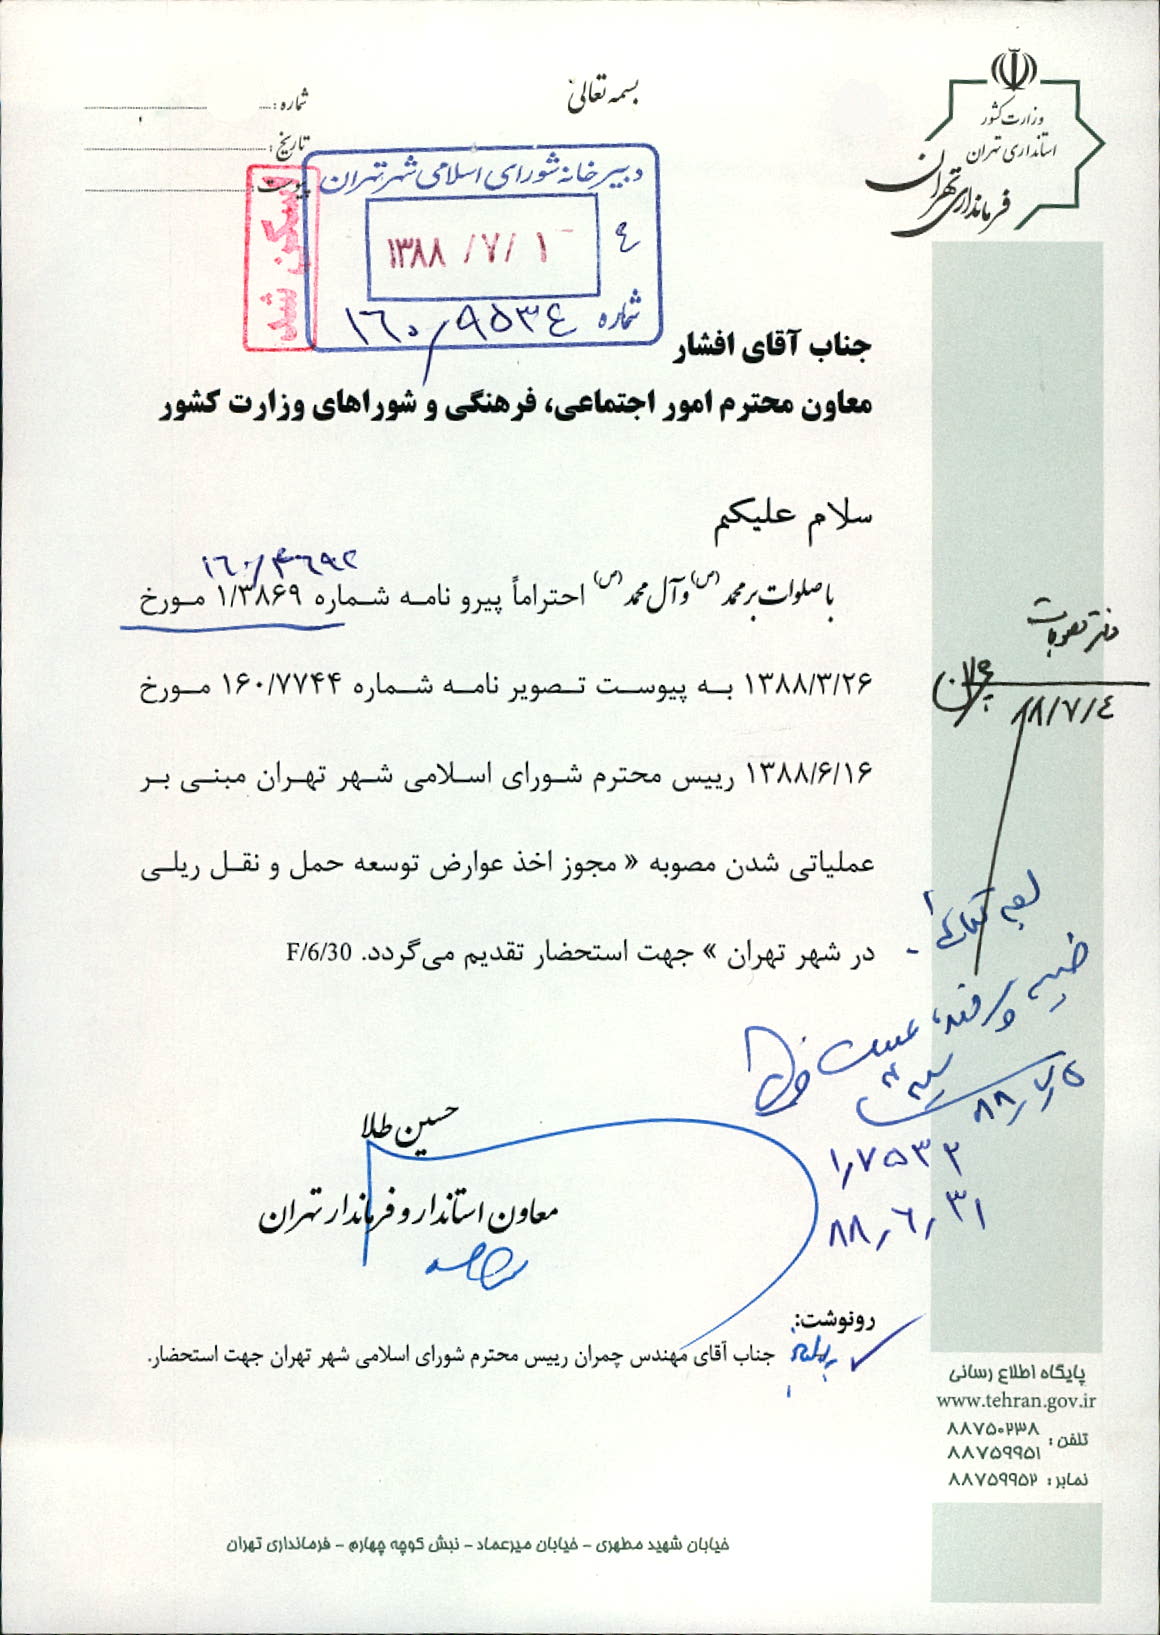 بسمه تعالی
وزارت کشور
استانداری تهران
فرمانداری تهران
شماره :
تاریخ :
پیوست :
اسکن شد
دبیرخانه شورای اسلامی شهر تهران
۱۳۸۸ /۷/ ۱
شماره ۱۶۰/۹۵۳٤
جناب آقای افشار
معاون محترم امور اجتماعی، فرهنگی و شوراهای وزارت کشور
سلام علیکم
۱۶۰/۴۶۹۲
با صلوات بر محمد (ص) و آل محمد (ص) احتراماً پیرو نامه شماره ۱/۳۸۶۹ مورخ
۱۳۸۸/۳/۲۶ به پیوست تصویر نامه شماره ۱۶۰/۷۷۴۴ مورخ
۱۳۸۸/۶/۱۶ رییس محترم شورای اسلامی شهر تهران مبنی بر
عملیاتی شدن مصوبه « مجوز اخذ عوارض توسعه حمل و نقل ریلی
در شهر تهران » جهت استحضار تقدیم می‌گردد. F/6/30
دفتر مصوبات
۸۸/۷/٤
۸۸/۷/۵
۱/۷۵۳۲
۸۸/۶/۳۱
حسین طلا
معاون استاندار و فرماندار تهران
رونوشت:
جناب آقای مهندس چمران رییس محترم شورای اسلامی شهر تهران جهت استحضار.
پایگاه اطلاع رسانی
www.tehran.gov.ir
تلفن : ۸۸۷۵۰۲۳۸
۸۸۷۵۹۹۵۱
نمابر : ۸۸۷۵۹۹۵۲
خیابان شهید مطهری - خیابان میرعماد - نبش کوچه چهارم - فرمانداری تهران